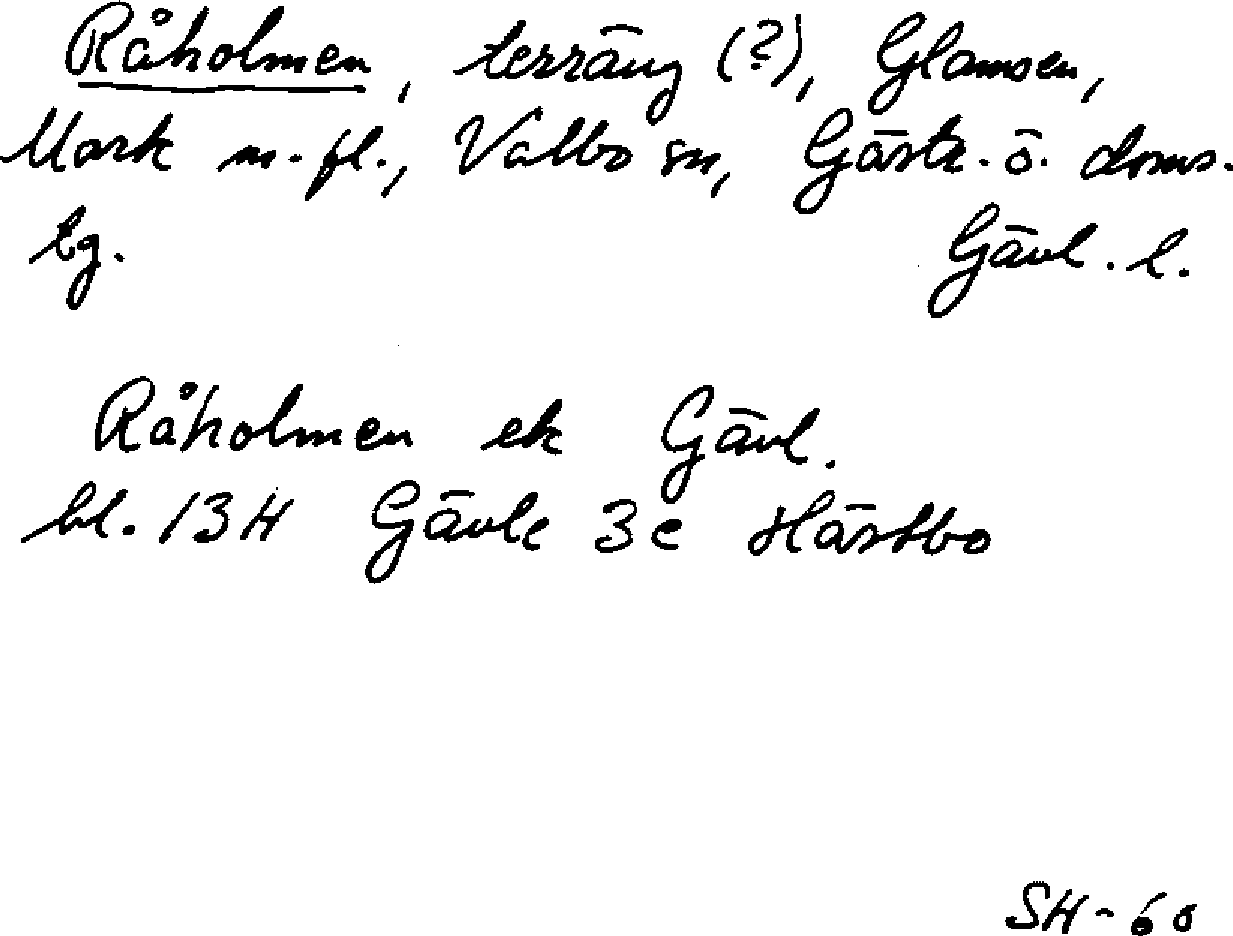 Råholmen, terräng (?), Glamsen,
Mark m. fl., Valbo sn, Gästr. ö. doms.
lg. Gävl. l.
Råholmen ek Gävl.
bl. 13H Gävle 3c Hästbo
SH-60